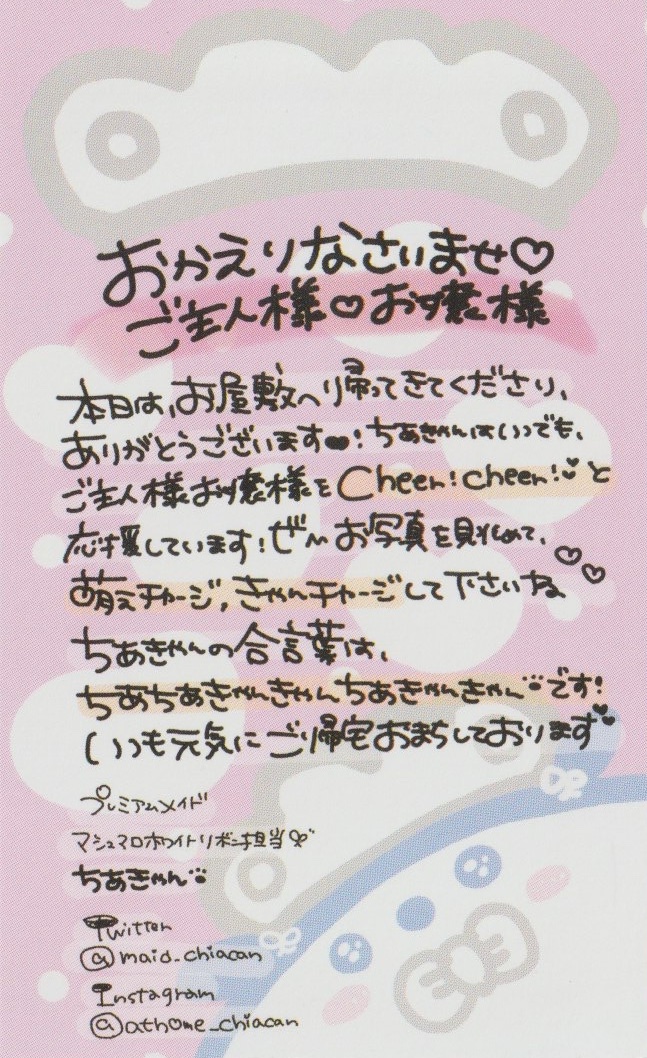 おかえりなさいませ♡
ご主人様♡お嬢様
本日は、お屋敷へり帰ってきてくださり、
ありがとうございます♥!ちあきゃんはいつでも、
ご主人様お嬢様を Cheer!cheer!♥と
応援しています!ぜひお写真を見つめて、
萌えチャージ,きゃんチャージして下さいね♡♡
ちあきゃんの合言葉は、
ちあちあきゃんきゃんちあきゃんきゃんです!
いつも元気にご帰宅おまちしております♥
プレミアムメイド
マシュマロホワイトリボン担当
ちあきゃん
Twitter
@maid_chiacan
Instagram
@athome_chiacan